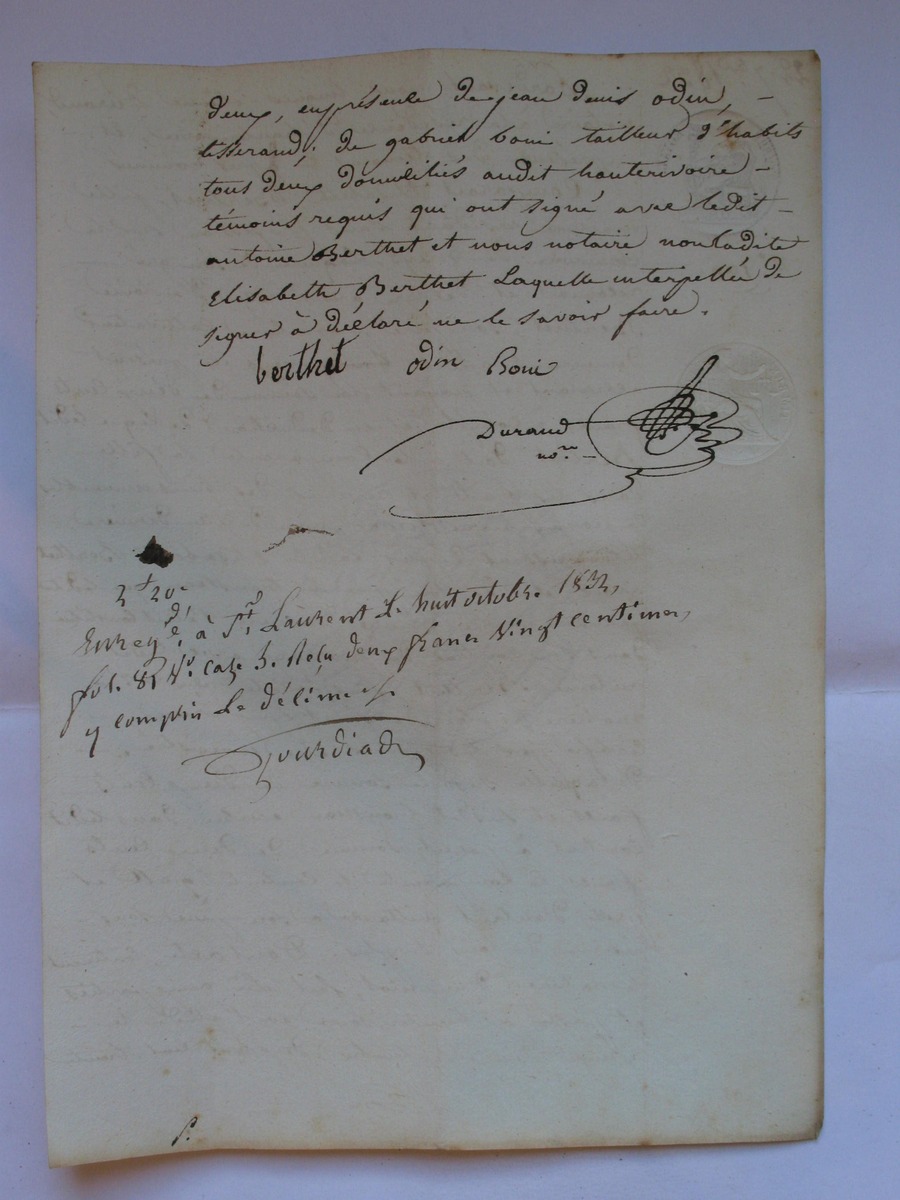 deux, en présence de jean denis odin, –
tisserand, de gabriel boui tailleur d'habits
tous deux domiciliés audit hauterivoire –
témoins requis qui ont signé avec ledit –
antoine Berthet et nous notaire non ladite
Elisabeth Berthet Laquelle interpellée de
signer à déclaré ne le savoir faire.
berthet odin Boui
Durand
nore –
2f 20c
Enregé, à St, Laurent le huit octobre 1832,
fol. 85 Vo case 3. Reçu deux francs Vingt centimes,
y compris le décime.